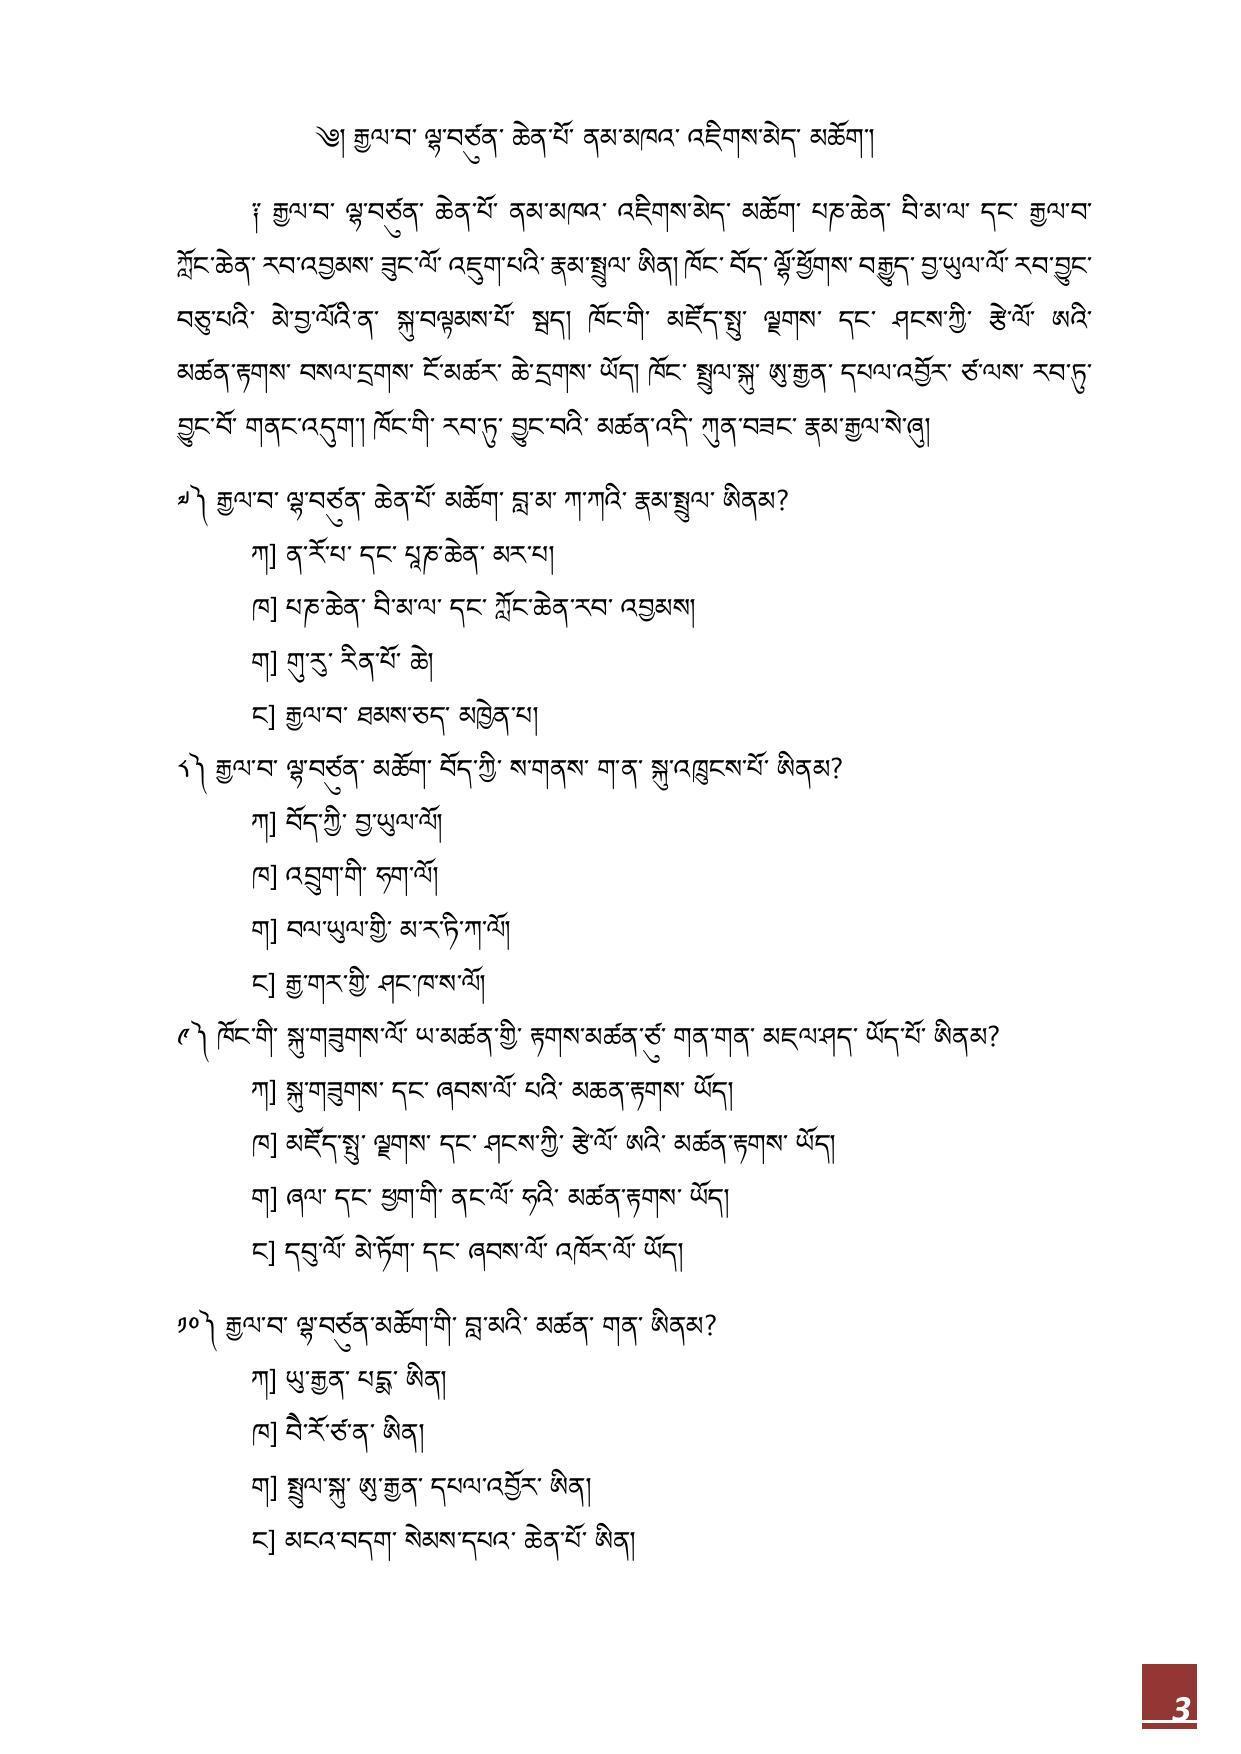 ༄༅། རྒྱལ་བ་ ལྷ་བཙུན་ ཆེན་པོ་ ནམ་མཁའ་ འཇིགས་མེད་ མཆོག།
༈ རྒྱལ་བ་ ལྷ་བཙུན་ ཆེན་པོ་ ནམ་མཁའ་ འཇིགས་མེད་ མཆོག་ པཎ་ཆེན་ བི་མ་ལ་ དང་ རྒྱལ་བ་
ཀློང་ཆེན་ རབ་འབྱམས་ ཟུང་ལོ་ འཇུག་པའི་ རྣམ་སྤྲུལ་ ཨིན། ཁོང་ བོད་ ལྷོ་ཕྱོགས་ བརྒྱུད་ བྱ་ཡུལ་ལོ་ རབ་བྱུང་
བཅུ་པའི་ མེ་བྱ་ལོའི་ན་ སྐུ་བལྟམས་པོ་ སྦད། ཁོང་གི་ མཛོད་སྤུ་ ལྗགས་ དང་ ཤངས་ཀྱི་ རྩེ་ལོ་ ཨའི་
མཚན་རྟགས་ བསལ་དྲགས་ ངོ་མཚར་ ཆེ་དྲགས་ ཡོད། ཁོང་ སྤྲུལ་སྐུ་ ཨུ་རྒྱན་ དཔལ་འབྱོར་ ཙ་ལས་ རབ་ཏུ་
བྱུང་བོ་ གནང་འདུག། ཁོང་གི་ རབ་ཏུ་ བྱུང་བའི་ མཚན་འདི་ ཀུན་བཟང་ རྣམ་རྒྱལ་སེ་ཞུ།
༧༽ རྒྱལ་བ་ ལྷ་བཙུན་ ཆེན་པོ་ མཆོག་ བླ་མ་ ཀ་ཀའི་ རྣམ་སྤྲུལ་ ཨིནམ?
ཀ] ན་རོ་པ་ དང་ པཱཎ་ཆེན་ མར་པ།
ཁ] པཎ་ཆེན་ བི་མ་ལ་ དང་ ཀློང་ཆེན་རབ་ འབྱམས།
ག] གུ་རུ་ རིན་པོ་ ཆེ།
ང] རྒྱལ་བ་ ཐམས་ཅད་ མཁྱེན་པ།
༨༽ རྒྱལ་བ་ ལྷ་བཙུན་ མཆོག་ བོད་ཀྱི་ ས་གནས་ ག་ན་ སྐུ་འཁྲུངས་པོ་ ཨིནམ?
ཀ] བོད་ཀྱི་ བྱ་ཡུལ་ལོ།
ཁ] འབྲུག་གི་ ཧཱག་ལོ།
ག] བལ་ཡུལ་གྱི་ མ་ར་ཏི་ཀ་ལོ།
ང] རྒྱ་གར་གྱི་ ཤང་ཁ་ས་ལོ།
༩༽ ཁོང་གི་ སྐུ་གཟུགས་ལོ་ ཡ་མཚན་གྱི་ རྟགས་མཚན་ཙུ་ གན་གན་ མཇལ་ཤད་ ཡོད་པོ་ ཨིནམ?
ཀ] སྐུ་གཟུགས་ དང་ ཞབས་ལོ་ པའི་ མཆན་རྟགས་ ཡོད།
ཁ] མཛོད་སྤུ་ ལྗགས་ དང་ ཤངས་ཀྱི་ རྩེ་ལོ་ ཨའི་ མཚན་རྟགས་ ཡོད།
ག] ཞལ་ དང་ ཕྱག་གི་ ནང་ལོ་ ཧའི་ མཚན་རྟགས་ ཡོད།
ང] དབུ་ལོ་ མེ་ཏོག་ དང་ ཞབས་ལོ་ འཁོར་ལོ་ ཡོད།
༡༠༽ རྒྱལ་བ་ ལྷ་བཙུན་མཆོག་གི་ བླ་མའི་ མཚན་ གན་ ཨིནམ?
ཀ] ཡུ་རྒྱན་ པདྨ་ ཨིན།
ཁ] བཻ་རོ་ཙ་ན་ ཨིན།
ག] སྤྲུལ་སྐུ་ ཨུ་རྒྱན་ དཔལ་འབྱོར་ ཨིན།
ང] མངའ་བདག་ སེམས་དཔའ་ ཆེན་པོ་ ཨིན།
3